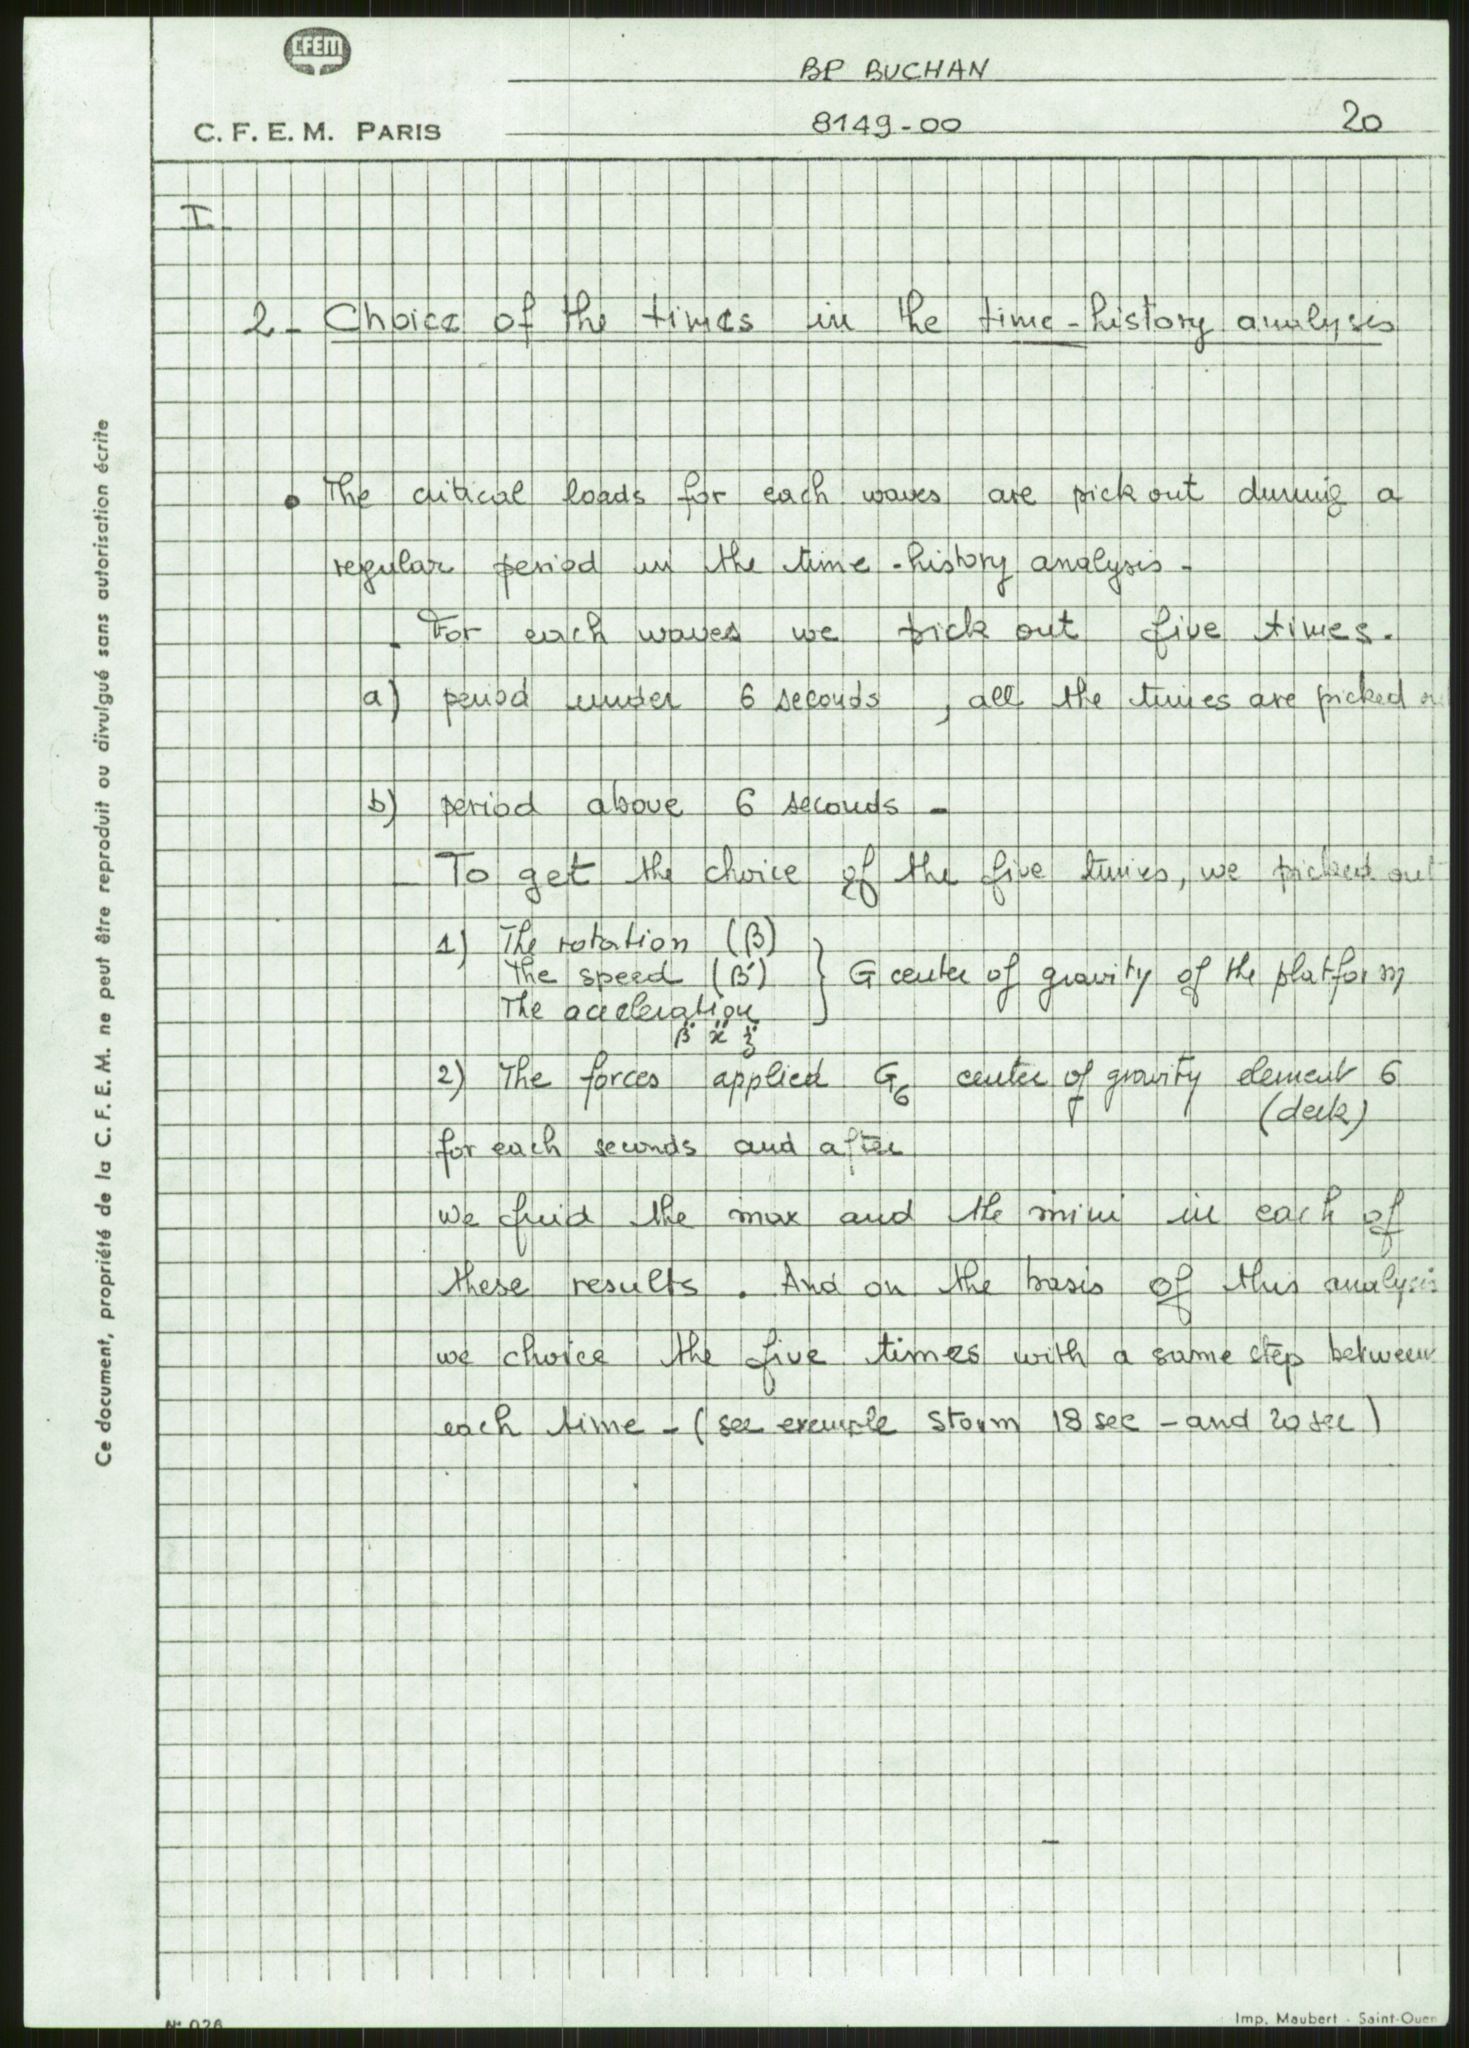 CFEM
BP BUCHAN
C. F. E. M. PARIS
8149-00
20
I_
2_ Choice of the times in the time-history analysis
• The critical loads for each waves are pick out during a
regular period in the time-history analysis-
- For each waves we pick out five times.
a) period under 6 seconds , all the times are picked
b) period above 6 seconds -
_ To get the choice of the five times, we picked out
1) The rotation (β)
The speed (β̇)
The acceleration
β̈ ẍ z̈
} G center of gravity of the platform
2) The forces applied G6 center of gravity element 6
(deck)
for each seconds and after
we find the max and the mini in each of
these results . And on the basis of this analysis
we choice the five times with a same step between
each time - (see exemple storm 18 sec - and 20 sec)
Ce document, propriété de la C. F. E. M. ne peut être reproduit ou divulgué sans autorisation écrite
N° 026
Imp. Maubert - Saint-Ouen